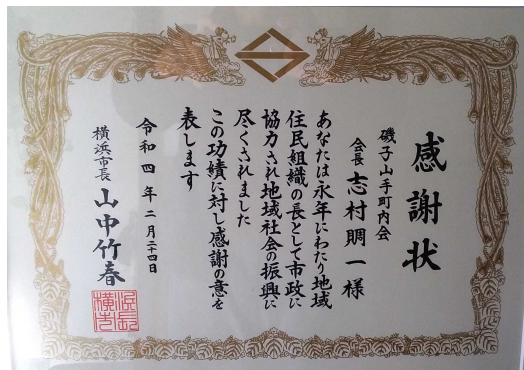 感謝状
磯子山手町内会
会長 志村賙一様
あなたは永年にわたり地域
住民組織の長として市政に
協力され地域社会の振興に
尽くされました
この功績に対し感謝の意を
表します
令和四年二月二十四日
横浜市長 山中竹春